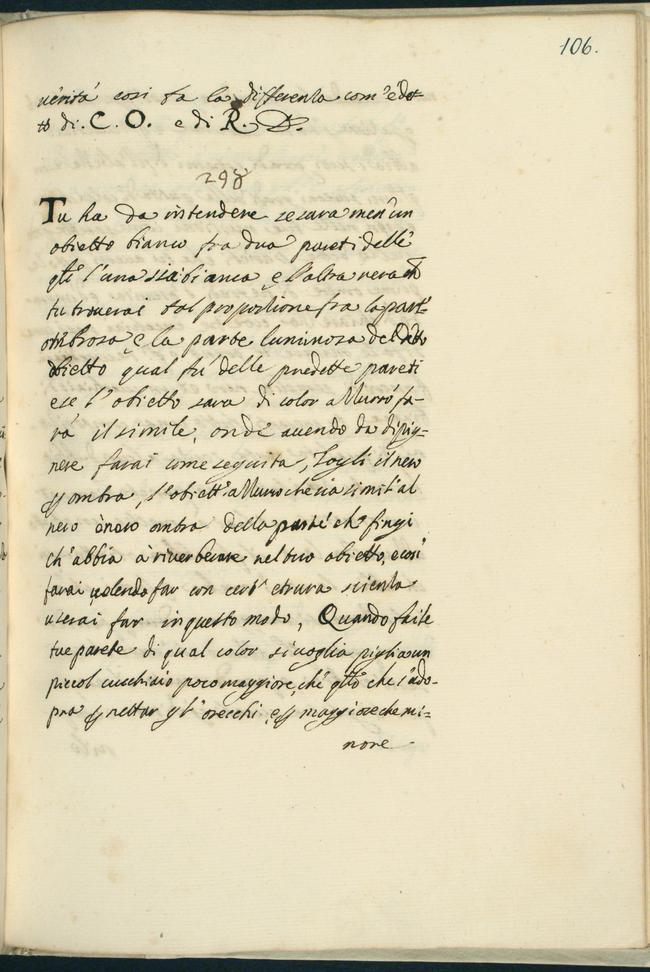 106.
verità cosi fa la differenza com'è det-
to di. C. O. e di R. D.
298
Tu ha da intendere se sara mess'un
obietto bianco fra dua pareti delle
qli l'una sia bianca e l'altra nera
tu trouerai tal proportione fra la part'
ombrosa e la parte luminosa del detto
obietto qual fu' delle predette pareti
e se l'obietto sara di color azzurro fa-
rà il simile, onde auendo da dipig-
nere farai come seguita, Togli il nero
p ombra, l'obiett' azzurro che sia simil' al
nero ò uero ombra della parete ch' fingi
ch'abbia à riuerberare nel tuo obietto, e cosi
farai uolendo far con cert' e uera scienza
userai far in questo modo, Quando fai le
tue parete di qual color si uoglia piglia un
piccol cucchiaio poco maggiore, che qllo che s'ado-
pra p nettar gl' orecchi, e p maggiore che mi-
nore